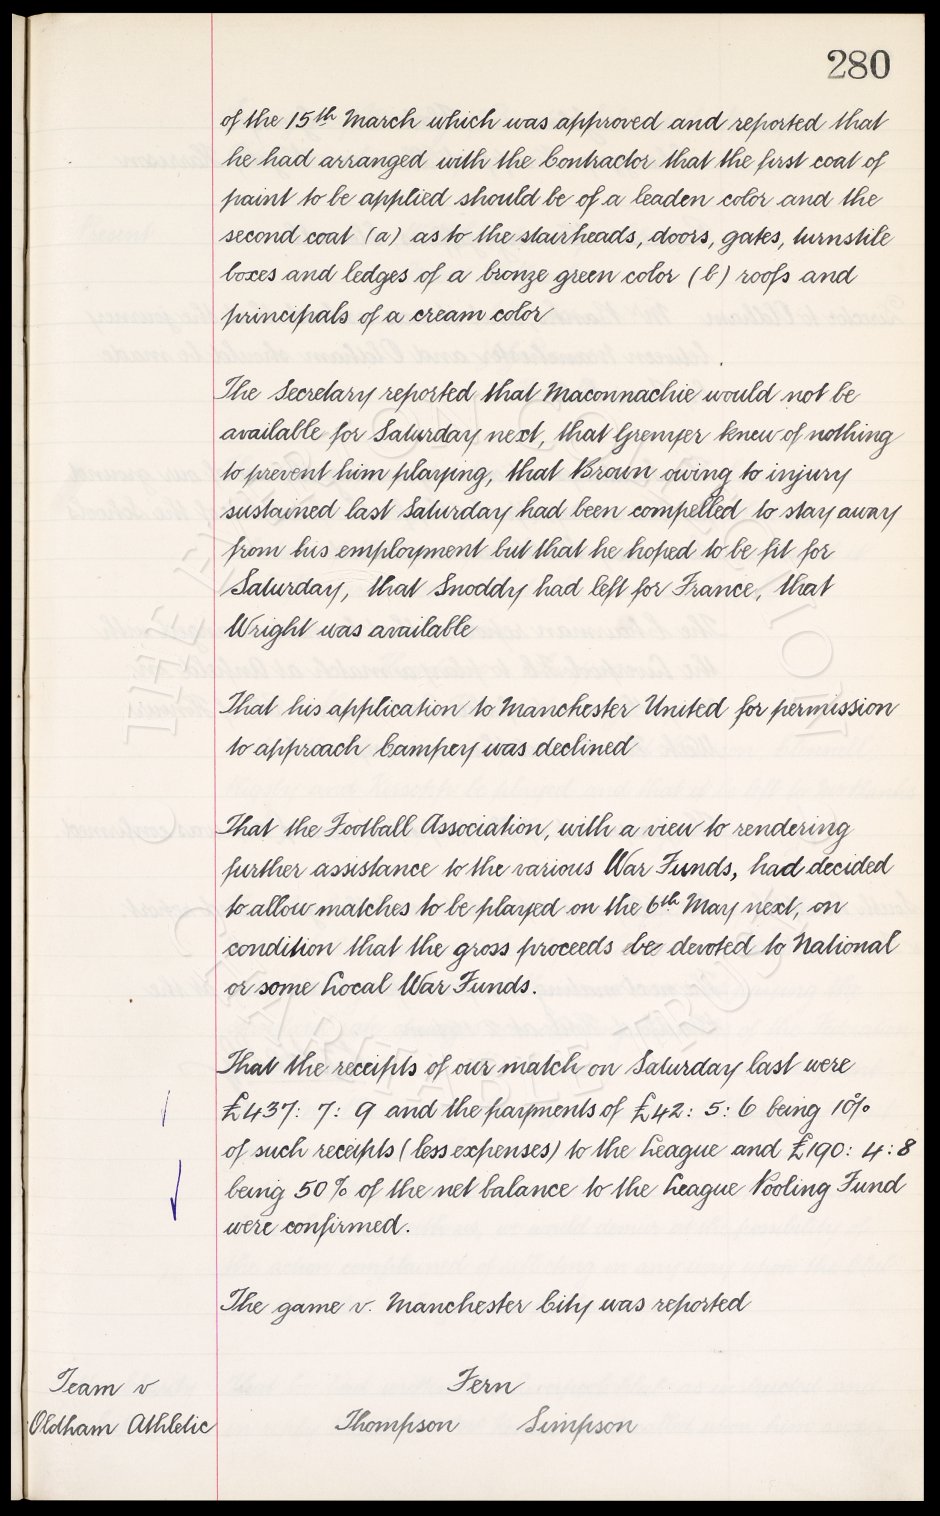 280
of the 15th March which was approved and reported that
he had arranged with the Contractor that the first coat of
paint to be applied should be of a leaden color and the
second coat (a) as to the stairheads, doors, gates, turnstile
boxes and ledges of a bronze green color (b) roofs and
principals of a cream color
The Secretary reported that Maconnachie would not be
available for Saturday next, that Grenyer knew of nothing
to prevent him playing, that Brown owing to injury
sustained last Saturday had been compelled to stay away
from his employment but that he hoped to be fit for
Saturday, that Snoddy had left for France, that
Wright was available
That his application to Manchester United for permission
to approach Campey was declined
That the Football Association, with a view to rendering
further assistance to the various War Funds, had decided
to allow matches to be played on the 6th May next, on
condition that the gross proceeds be devoted to National
or some Local War Funds.
That the receipts of our match on Saturday last were
£437: 7: 9 and the payments of £42: 5: 6 being 10%
of such receipts (less expenses) to the League and £190: 4: 8
being 50% of the net balance to the League Pooling Fund
were confirmed.
The game v. Manchester City was reported
Team v Fern
Oldham Athletic Thompson Simpson